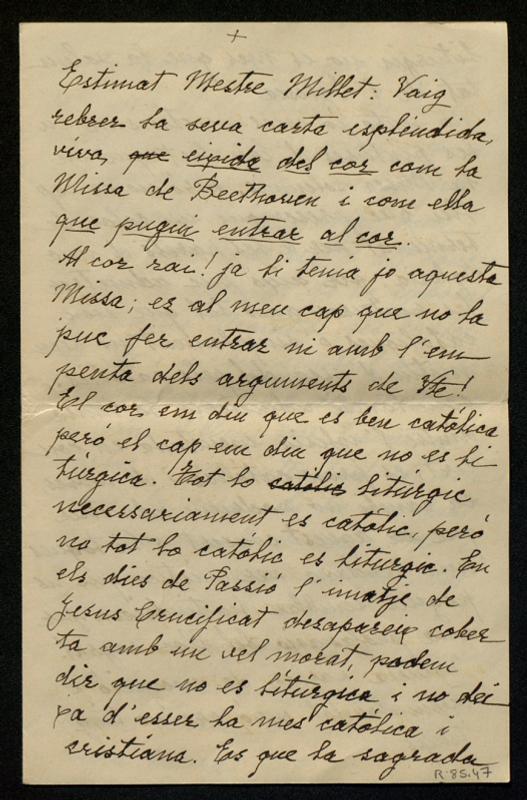 +
Estimat Mestre Millet: Vaig
rebrer la seva carta espléndida,
viva, que eixida del cor com la
Missa de Beethoven i com ella
que pugui entrar al cor.
Al cor rai! ja hi tenia jo aquesta
Missa; es al meu cap que no la
puc fer entrar ni amb l'em
penta dels arguments de Vte!
El cor em diu que es ben católica
peró el cap em diu que no es li
túrgica. Tot lo católic litúrgic
necessariament es católic, peró
no tot lo católic es litúrgic. En
els dies de Passió l'imatje de
Jesus Crucificat desapareix cober
ta amb un vel morat, podem
dir que no es litúrgica i no dei
xa d'esser la mes católica i
cristiana. Es que la sagrada
R.85.47